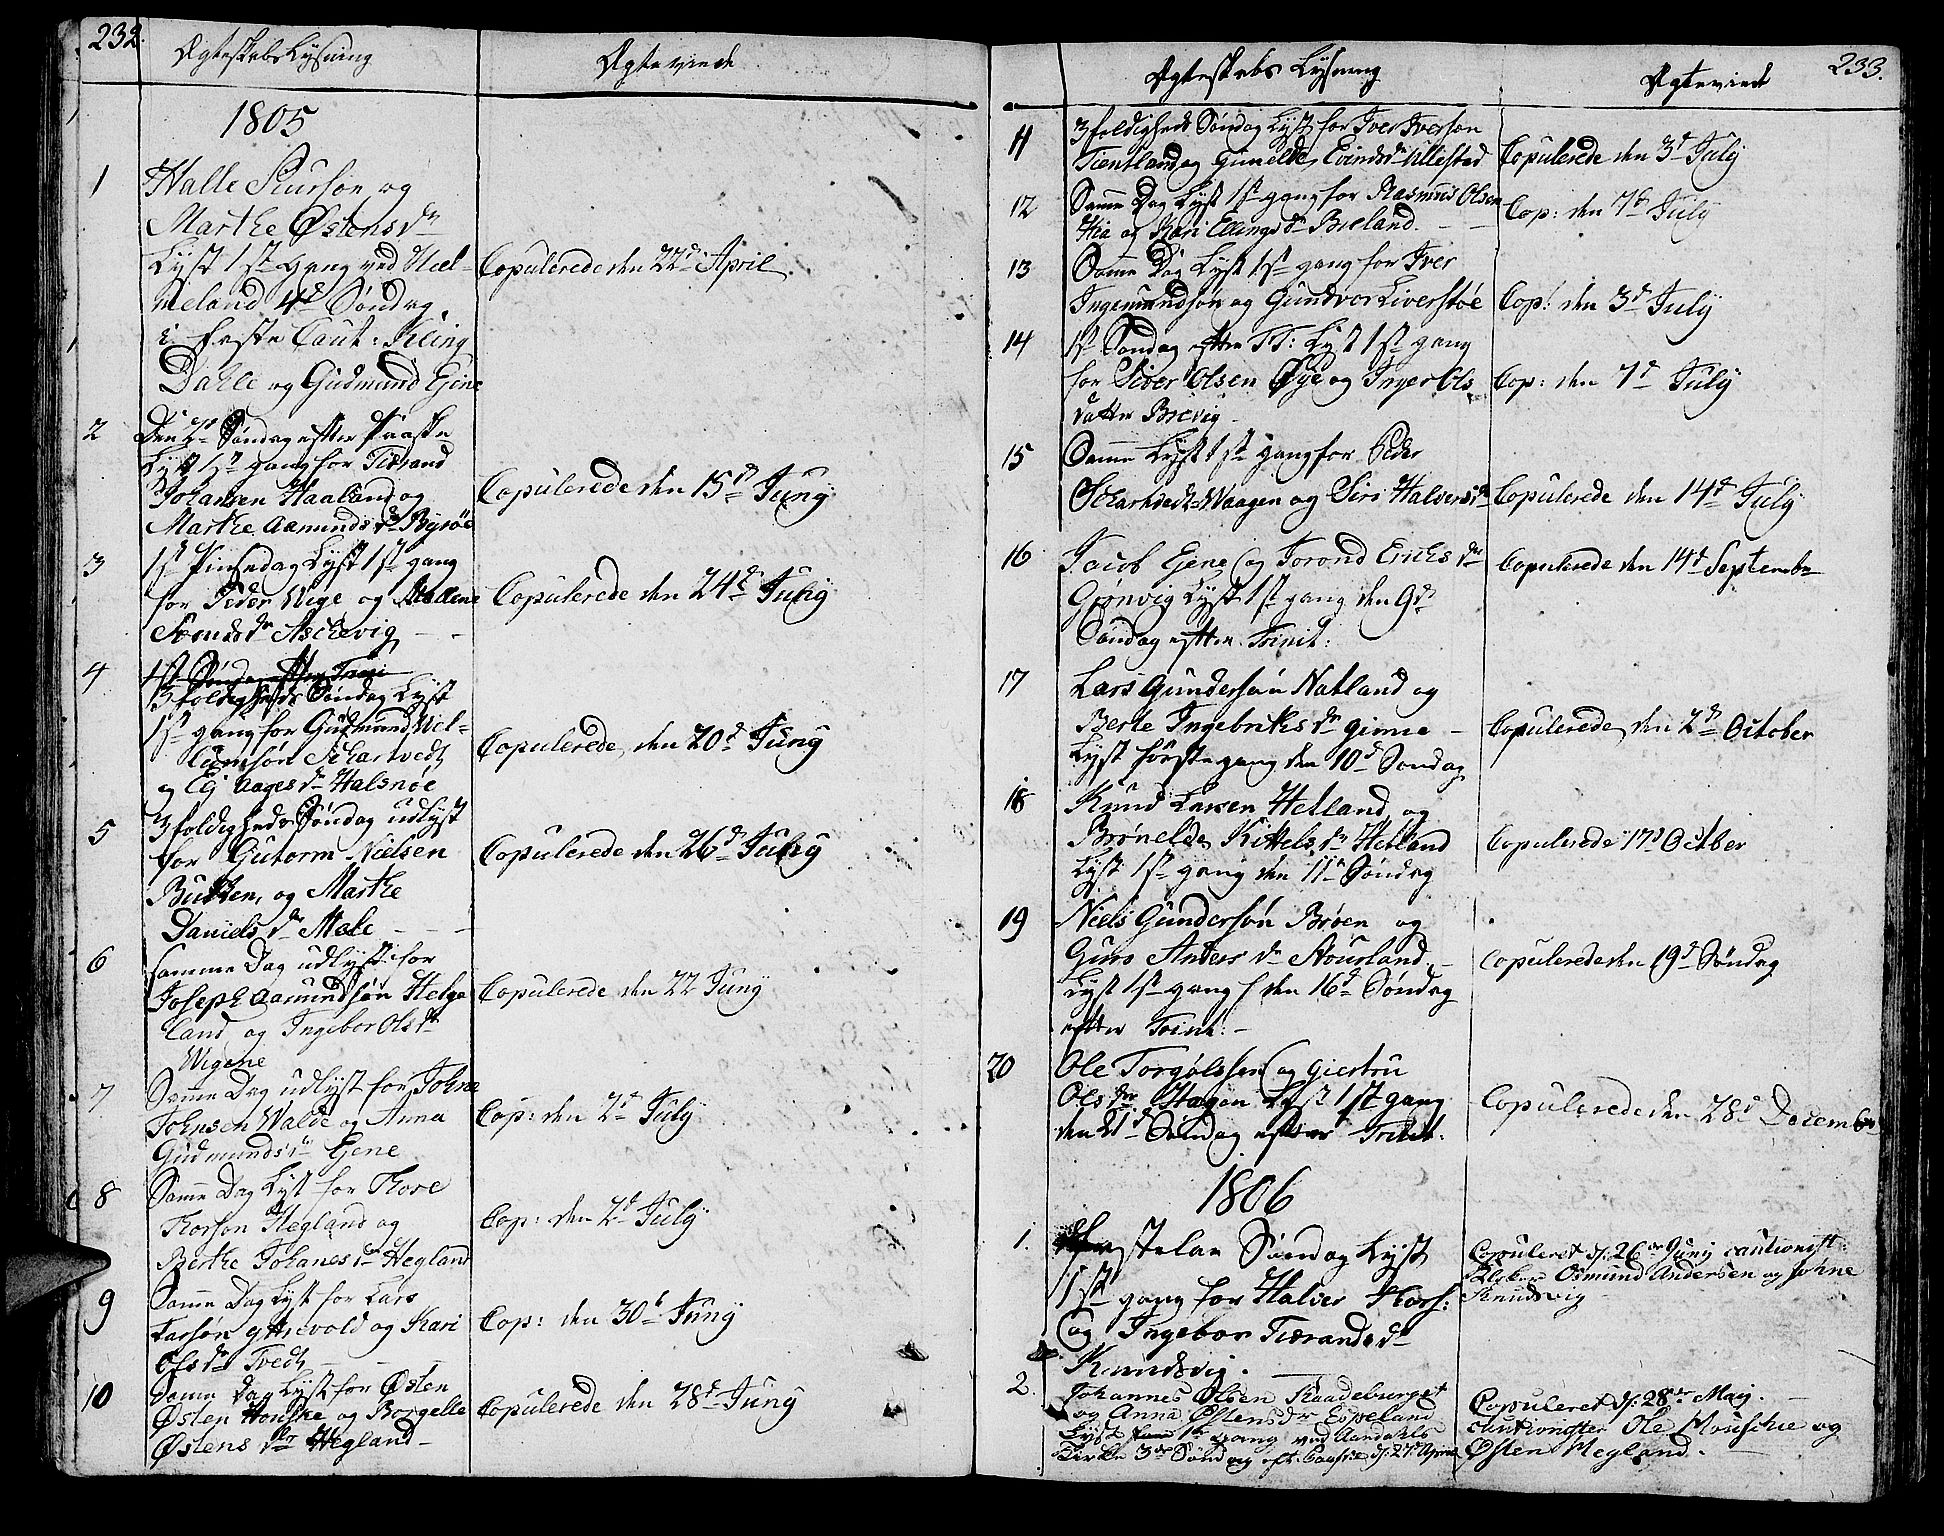 232.
Ægteskabs Lysning
Ægteviede
1805
1
Halle Siursøn og
Marthe Østens dr
Lyst 1ste gang ved Hiel-
meland 4de Søndag
i Faste Caut:
Dahle og Gudmund Eine
Copulerede den 22de April.
2
Den 2den Søndag efter Paaske
Lyst 1ste gang for Tiørand
Johansen Haaland og
Marthe Aamunds dr Byrøe
Copulerede den 15de Juny
3
1ste Pinsedag Lyst 1ste gang
for Peder Wige og Mallene
dr Aschevig
Copulerede den 24de July
4
1ste Søndag efter Trini
3foldigheds Søndag Lyst
1ste gang for Gudmund Wel-
lumsøn Schartvedt
og Eli Aages dr Halsnøe
Copulerede den 20de Juny
5
3foldigheds Søndag udlyst
for Gutorm Nielsen
Buthen, og Marthe
Daniels dr Mæle
Copulerede den 26de July
6
samme Dag udlyst for
Joseph Aamundsøn Helge
land og Ingebor Ols dr
Wigene
Copulerede den 22 Juny
7
Samme Dag udlyst for Johne
Johnsen Walde og Anna
Gudmunds dr Eiene
Cop: den 2de July
8
Samme Dag Lyst for Thore
Thorsøn Hegland og
Berthe Johanes dr Hegland
Cop: den 2de July
9
Samme Dag Lyst for Lars
Larsøn og Kari
Ols dr Tvedt
Cop: den 30te Juny
10
Samme Dag Lyst for Østen
Østen Houske og Borgelle
Østens dtr Hegland
Copulerede den 28de Juny
233.
Ægteskabs Lysning
Ægteviede
11
3foldigheds Søndag Lyst for Iver Iversøn
Tientland og Gunelde Evinds dr Ullestad
Copulerede den 3de July
12
Samme Dag Lyst 1ste gang for Rasmus Olsen
Hia og Kari Ellings dr Bieland.
Cop: den 7de July
13
Samme Dag Lyst 1ste gang for Iver
Ingemundsøn og Gundvor Liverstøe
Cop: den 3de July
14
1ste Søndag efter TT: Lyst 1ste gang
for Siver Olsen Øye og Inger Ols
datter Brevig
Cop: den 7de July
15
Samme Lyst 1ste gang for Peder
Waagen og Siri Halvers dr
Copulerede den 14de July
16
Jacob Eiene og Torond Erichs dr
Grønvig Lyst 1ste gang den 9de
Søndag efter Trinit:
Copulerede den 14de Septembr
17
Lars Gundersøn Natland og
Berte Ingebrikts dr Girne
Lyst første gang den 10de Søndag
Copulerede den 2den October
18
Knud Larsen Hetland og
Brønelde Kittels dr Hetland
Lyst 1ste gang den 11te Søndag
Copulerede 17de Octber
19
Niels Gundersøn Brøen og
Guro Anders dr Nourland
Lyst 1ste gang den 16de Søndag
efter Trinit:
Copulerede den 19de Søndag
20
Ole Torgølssen og Giertru
Ols dtr Hagen Lyst 1ste gang
den 21de Søndag efter Trinit:
Copulerede den 28de December
1806
1.
Fastelan Søndag Lyst
1ste gang for Halver Thors:
og Ingebor Tiørands dr
Knudsvig.
Copuleret d: 26de Juny cautionist:
Osmund Andersen og Johne
Knudsvig
2.
Johannes Olsen Raadeberget
og Anna Østensdr Espeland
Lyst 1ste gang ved Aardahls
Kirke 3die Søndag eft: Paaske d: 27de April
Copuleret d: 28de Maij.
cautionister Ole Mouschie og
Østen Hegland.